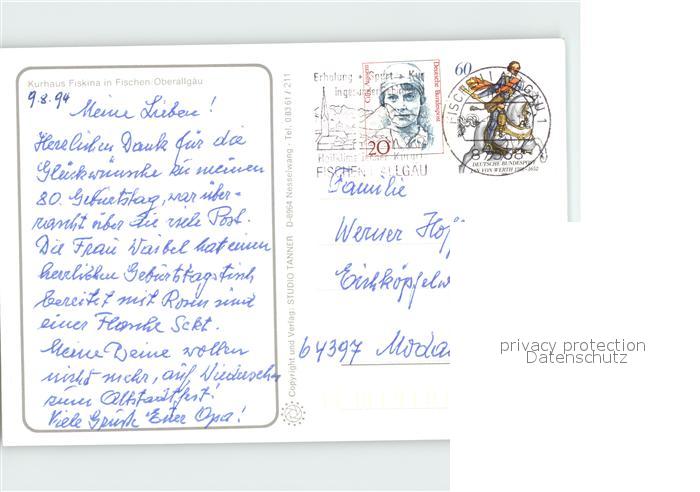 Kurhaus Fiskina in Fischen/Oberallgäu
9.8.94
Meine Lieben!
Herzlichen Dank für die
Glückwünsche zu meinen
80. Geburtstag, war über-
rascht über die viele Post.
Die Frau Waibel hat einen
herzlichen Geburtstagstisch
bereitet mit Rosen und
einer Flasche Sekt.
Meine Beine wollen
nicht mehr, auf Wiedersehn
zum Altstadtfest!
Viele Grüße Euer Opa!
Copyright und Verlag: STUDIO TANNER D-8964 Nesselwang · Tel. 08361/211
Erholung + Sport + Kur
Heilklima
FISCHEN ALLGÄU
20
Cilly Aussem
Deutsche Bundespost
60
FISCHEN ALLGÄU 1
87538
DEUTSCHE BUNDESPOST
JAN VON WERTH 1591-1652
Familie
Werner
64397 Moda
privacy protection
Datenschutz